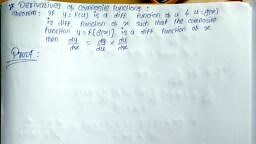 * Derivatives of composite functions :
Theorem : If y = f(u) is a diff function of u & u = g(x)
is diff function of x such that the composite
function y = f[g(x)] is a diff. function of x.
then dy/dx = dy/du × du/dx
Proof :